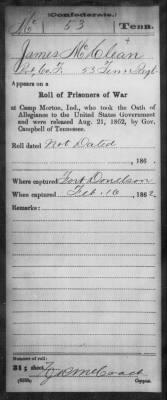 (Confederate.)
Mc 53 Tenn.
James McClean
Pvt Co. F, 53 Tenn Regt.
Appears on a
Roll of Prisoners of War
at Camp Morton, Ind., who took the Oath of
Allegiance to the United States Government
and were released Aug. 21, 1862, by Gov.
Campbell of Tennessee.
Roll dated Not Dated
, 186 .
Where captured Fort Donelson
When captured Feb. 16, 1862.
Remarks:
Number of roll:
31; sheet
Copyist.